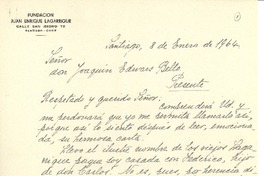 FUNDACION
JUAN ENRIQUE LAGARRIGUE
CALLE SAN ISIDRO 75
SANTIAGO - CHILE
Santiago, 8 de Enero de 1964.
Señor
don Joaquín Edwars Bello
Presente
Respetado y querido Señor:
comprenderá Ud. y
me perdonará que yo me permita llamarle así,
porque así lo siento después de leer, emociona-
da, su hermosa carta.
Llevo el ilustre nombre de los viejos Laga-
rrigue porque soy casada con Federico, hijo
de don Carlos. No es, pues, por herencia di